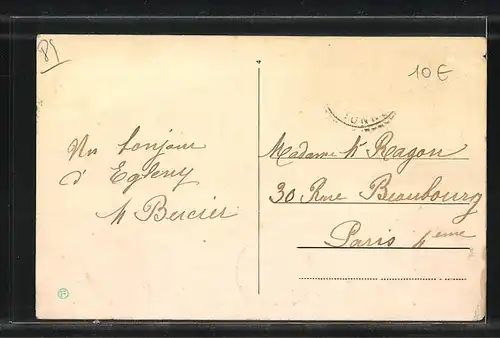 89
10€
Un bonjour
d'Egleny
H Bercier
Madame H Ragon
30 Rue Beaubourg
Paris 4eme